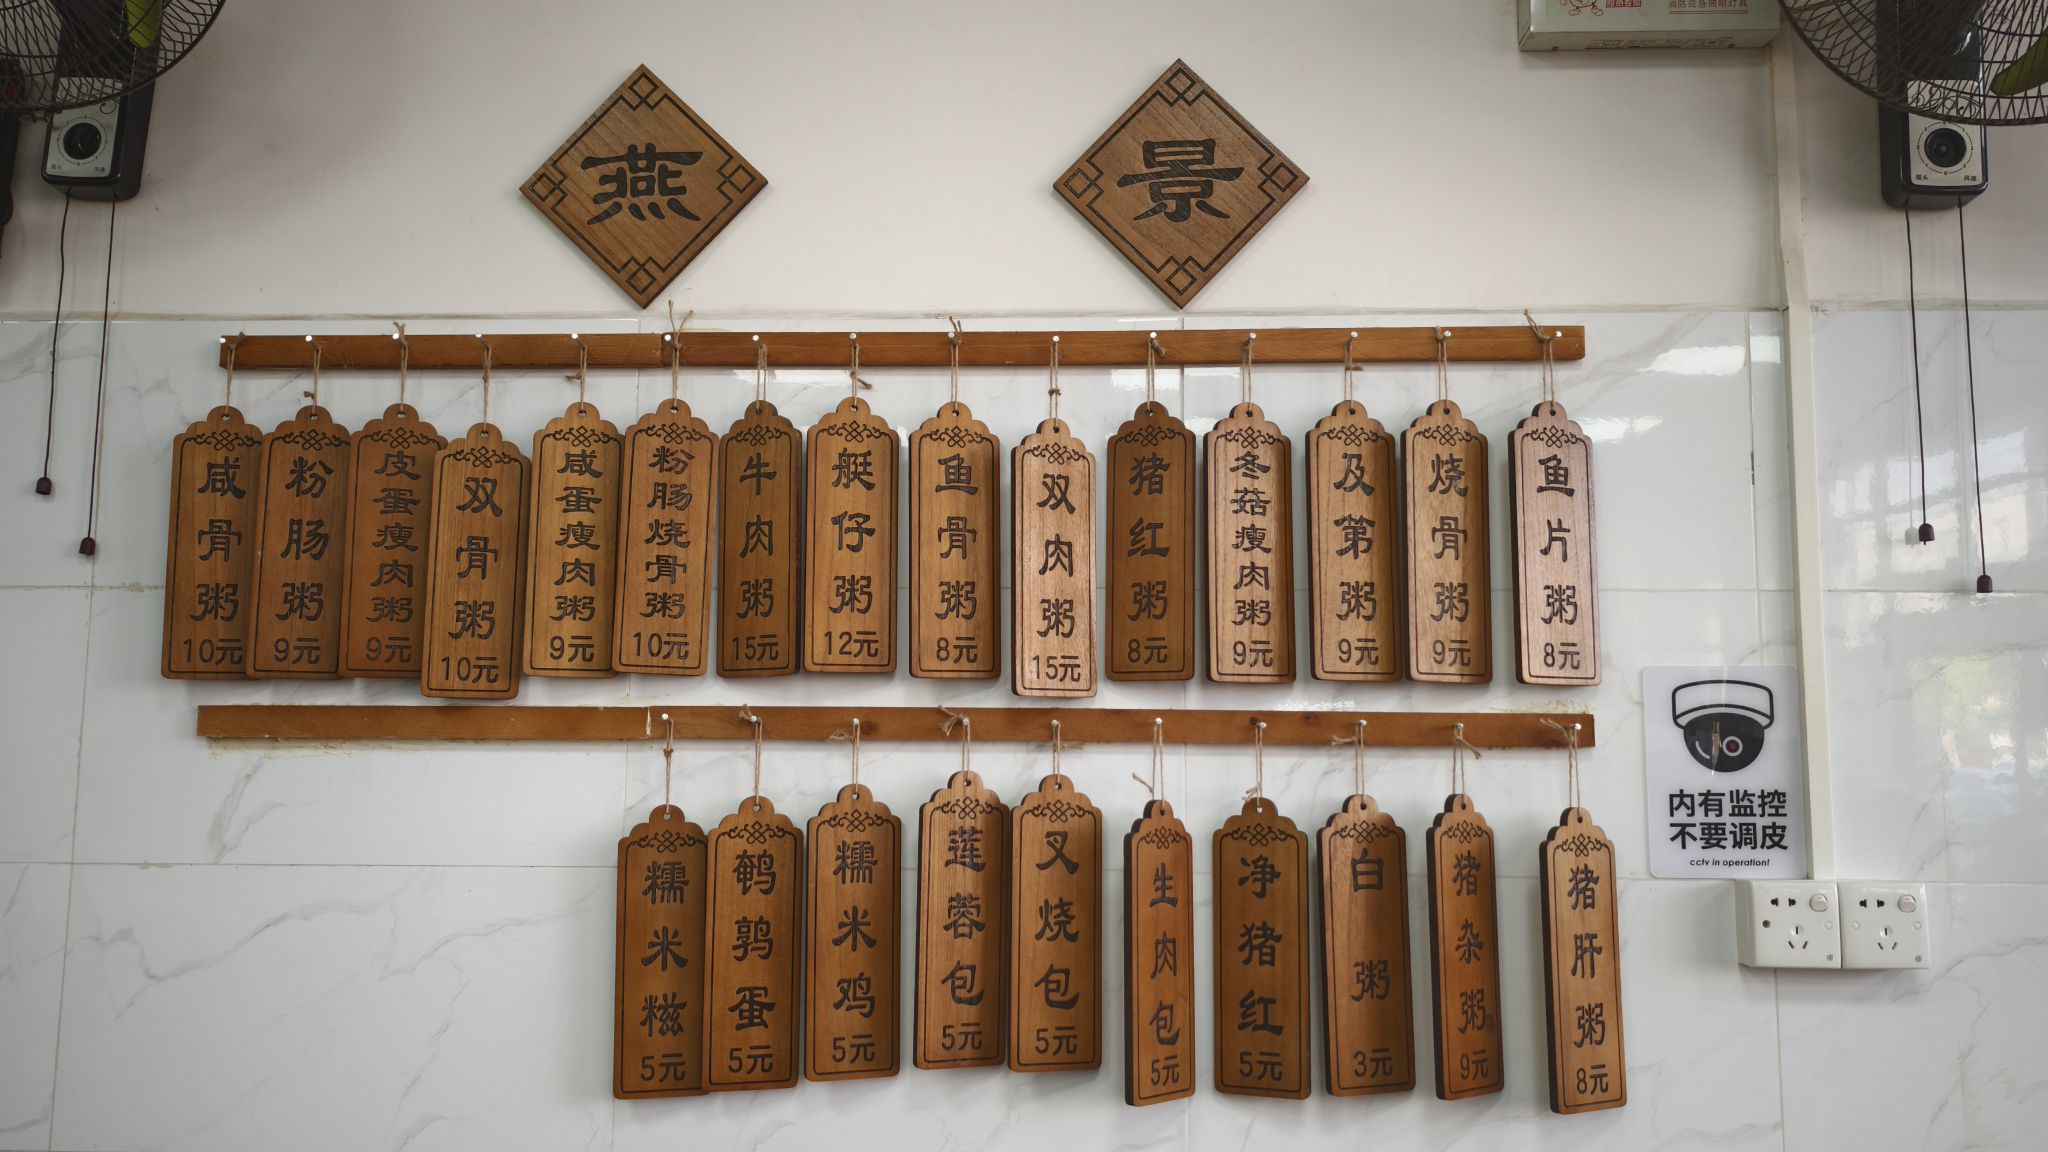 消防应急照明灯具
摇头 风速
摇头 风速
燕 景
咸骨粥 10元
粉肠粥 9元
皮蛋瘦肉粥 9元
双骨粥 10元
咸蛋瘦肉粥 9元
粉肠烧骨粥 10元
牛肉粥 15元
艇仔粥 12元
鱼骨粥 8元
双肉粥 15元
猪红粥 8元
冬菇瘦肉粥 9元
及第粥 9元
烧骨粥 9元
鱼片粥 8元
糯米糍 5元
鹌鹑蛋 5元
糯米鸡 5元
莲蓉包 5元
叉烧包 5元
生肉包 5元
净猪红 5元
白粥 3元
猪杂粥 9元
猪肝粥 8元
内有监控
不要调皮
cctv in operation!